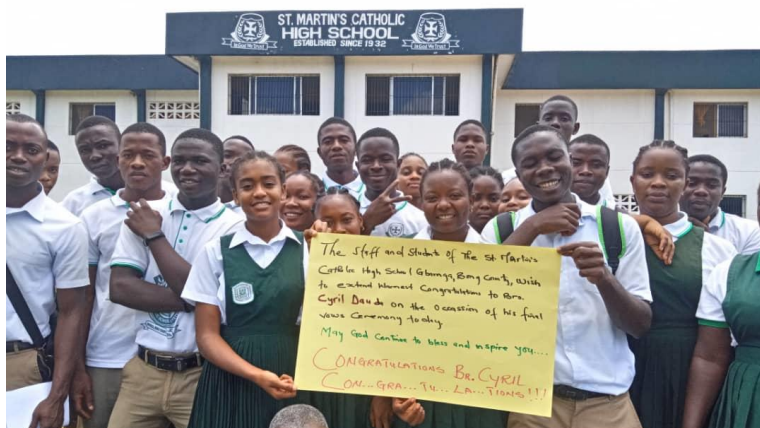 ST. MARTIN'S CATHOLIC
HIGH SCHOOL
ESTABLISHED SINCE 1932
In God We Trust
In God We Trust
The Staff and Students of The St. Martin's
Catholic High School Gbarnga, Bong County, Wish
to extend Warmest Congratulations to Bro.
Cyril Dauda on the occassion of his final
vows Ceremony today.
May God continue to bless and inspire you....
CONGRATULATIONS BR. CYRIL
CON...GRA...TU...LA...TIONS!!!